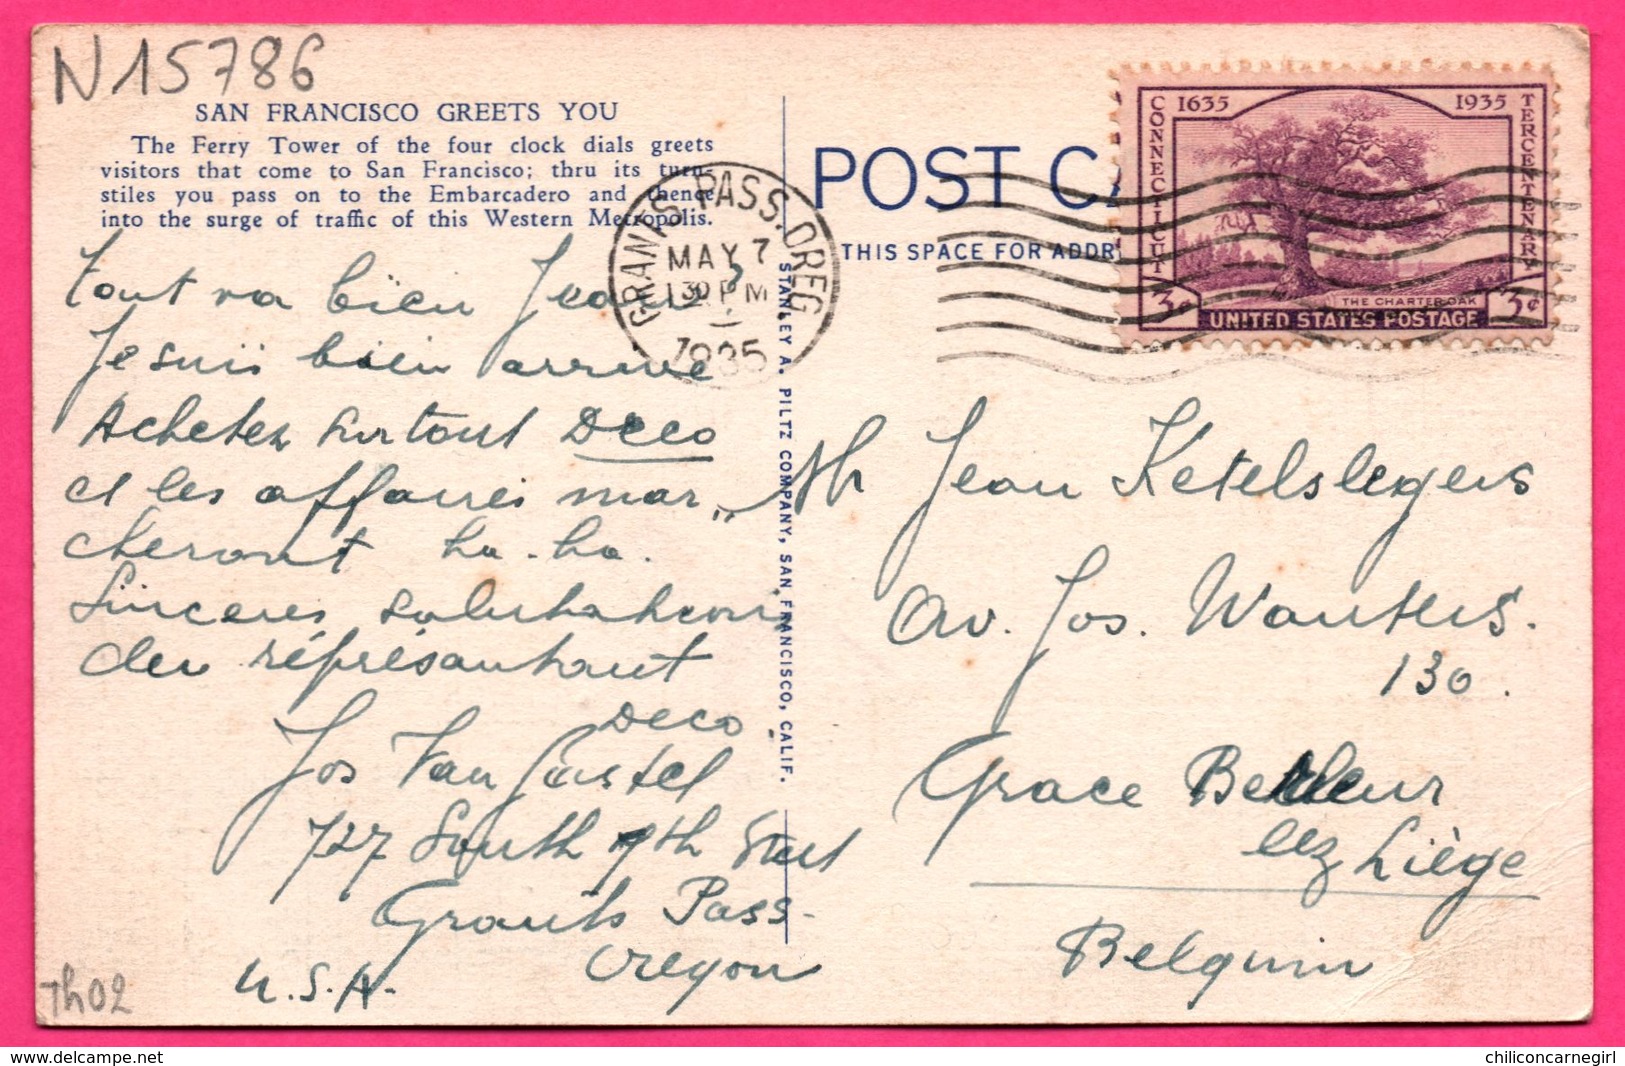 N 15786
SAN FRANCISCO GREETS YOU
The Ferry Tower of the four clock dials greets
visitors that come to San Francisco; thru its turn-
stiles you pass on to the Embarcadero and thence
into the surge of traffic of this Western Metropolis.
Tout va bien Jean?
Je suis bien arrivé
Achetez surtout Deco
et les affaires mar„
cheront ha-ha.
Sinceres salutations
du réprésentant
Deco.
Jos Van Castel
727 South 7th Street
Grants Pass-
Oregon
U.S.A.
Th02
STANLEY A. PILTZ COMPANY, SAN FRANCISCO, CALIF.
POST CA
THIS SPACE FOR ADDR
GRANTS PASS. OREG.
MAY 7
30 PM
1935
1635 1935
CONNECTICUT
TERCENTENARY
THE CHARTER OAK
3¢ 3¢
UNITED STATES POSTAGE
Mr Jean Ketelslegers
Av. Jos. Wauters.
130.
Grace Berleur
lez Liège
Belgium
chiliconcarnegirl